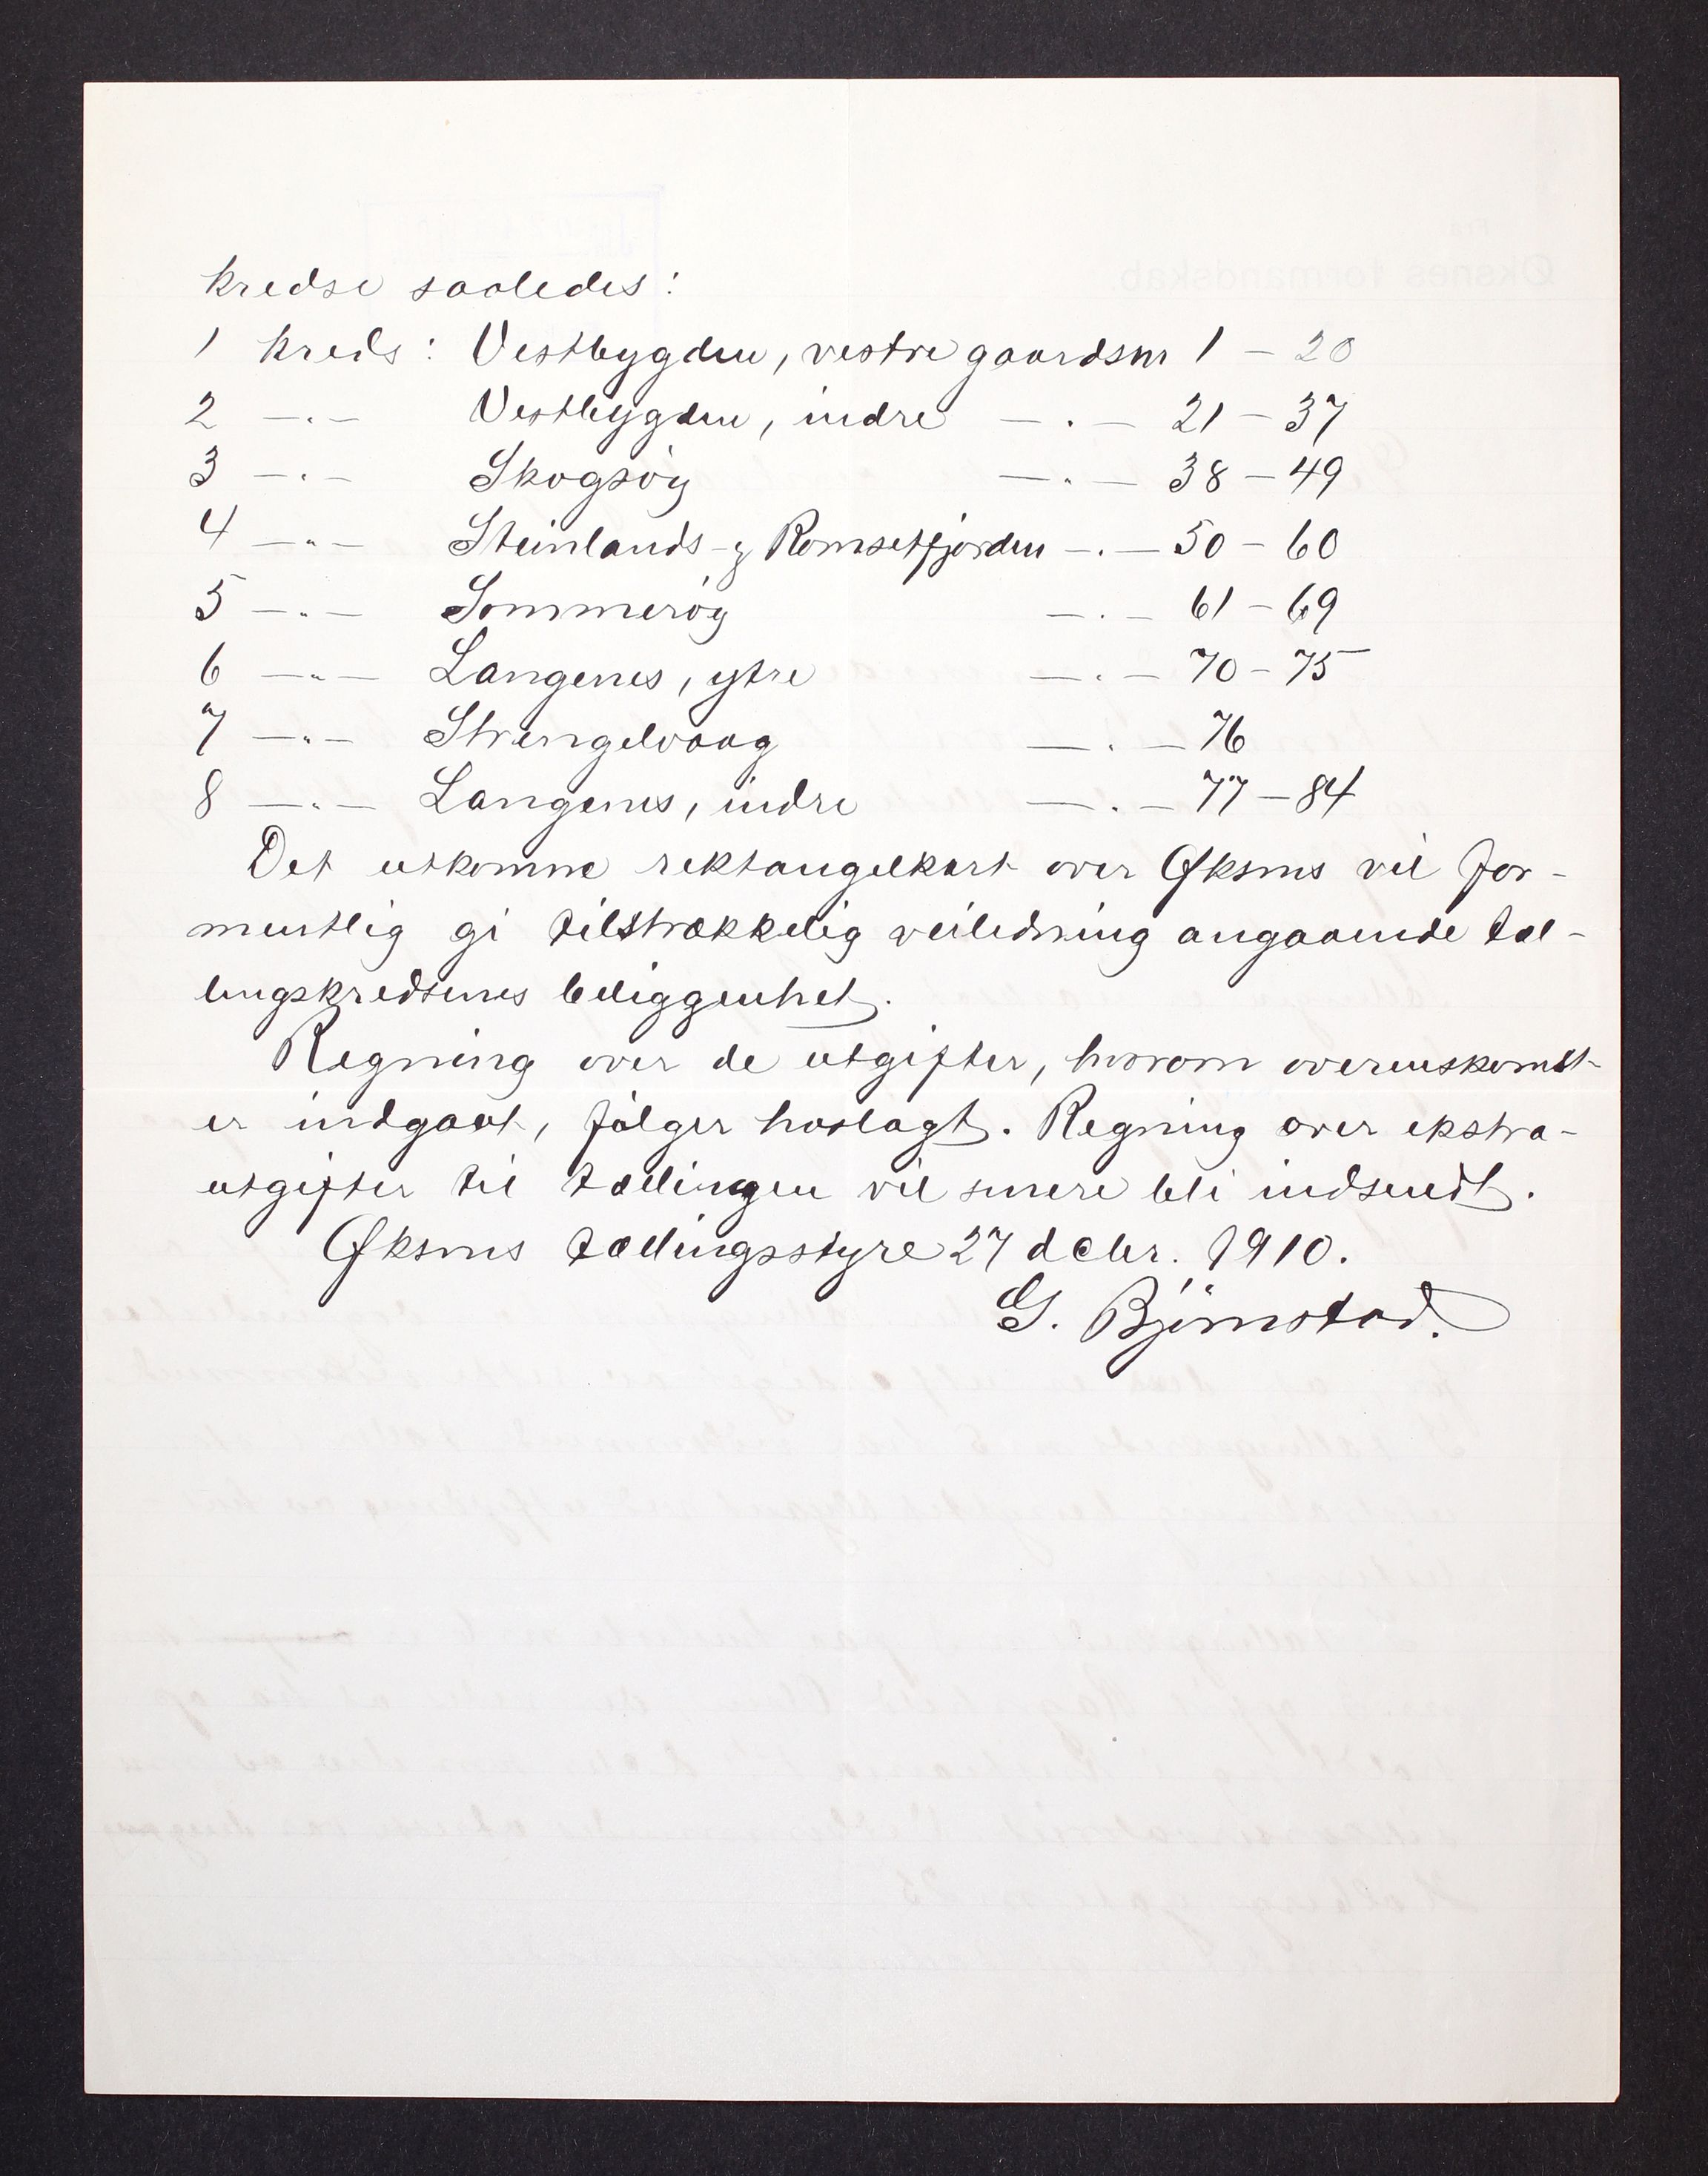 kredse saaledes:
1 kreds: Vestbygden, vestre gaardsnr 1 - 20
2 -"- Vestbygden, indre -"- 21 - 37
3 -"- Skogsøy -"- 38 - 49
4 -"- Steinlands- og Romsetfjorden -"- 50 - 60
5 -"- Sommerøy -"- 61 - 69
6 -"- Langenes, ytre -"- 70 - 75
7 -"- Strengelvaag -"- 76
8 -"- Langenes, indre -"- 77 - 84
Det utkomne rektangelkart over Øksnes vil for-
mentlig gi tilstrækkelig veiledning angaaende tæl-
lingskredsenes beliggenhet.
Regning over de utgifter, hvorom overenskomst
er indgaat, følger hoslagt. Regning over ekstra-
utgifter til tællingen vil senere bli indsendt.
Øksnes tællingsstyre 27 decbr. 1910.
G. Bjørnstad.